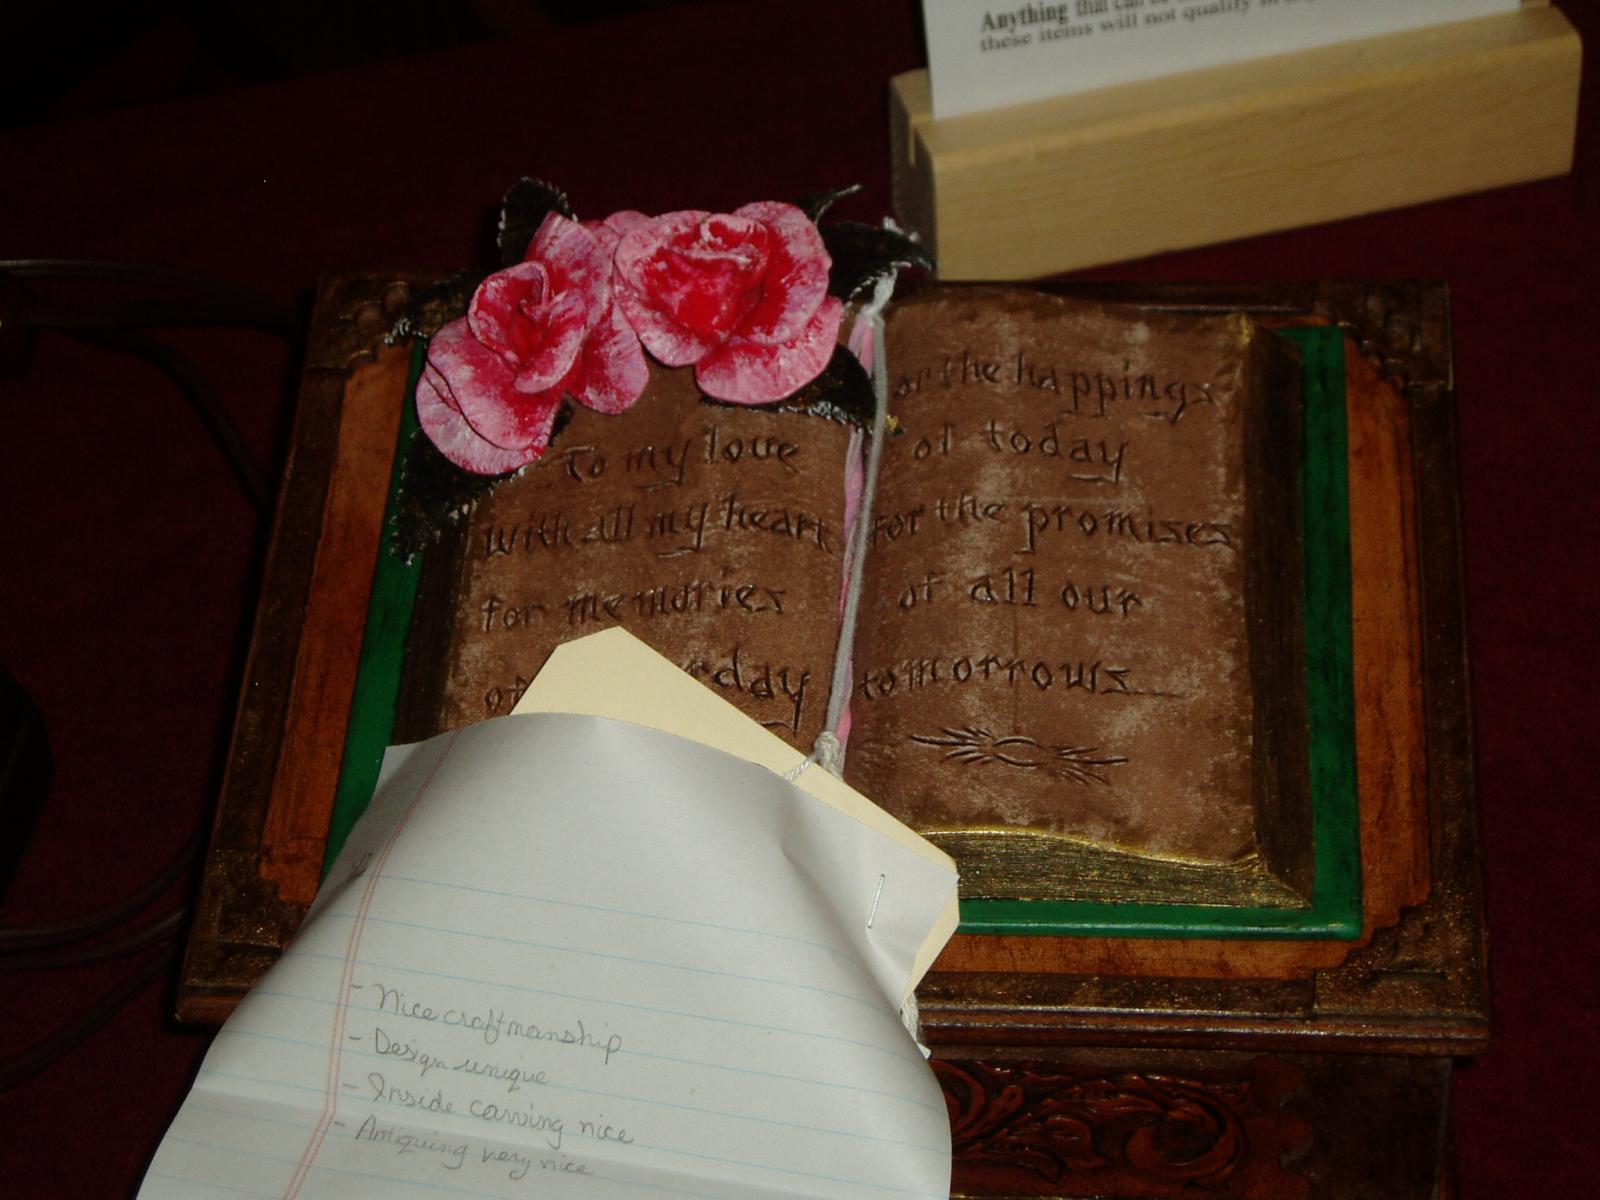 Anything that can
these items will not qualify in
To my love
with all my heart
for memories
of
or the happings
of today
for the promises
of all our
tomorrows
- Nice craftmanship
- Design unique
- Inside carving nice
- Antiquing very nice